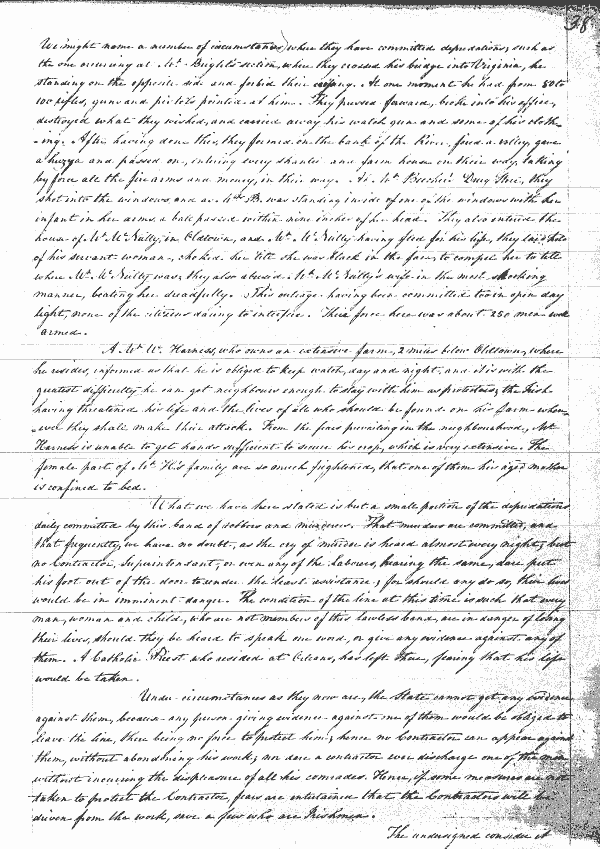 38
We might name a number of circumstances, where they have committed depredations, such as
the one occurring at Mr. Bright's section, where they crossed his bridge into Virginia, he
standing on the opposite side and forbid their crossing. At one moment he had from 80 to
100 rifles, guns and pistols pointed at him. They pursued forward, broke into his office,
destroyed what they wished, and carried away his watch gun and some of his cloth-
-ing. After having done this, they formed on the bank of the River, fired a volley, gave
a huzza and passed on, entering every shantie and farm house on their way, taking
by force all the fire arms and money, in their way. At Mr. Beecher's Drug Store, they
shot into the windows, and as Mrs. B. was standing inside of one of the windows with her
infant in her arms, a ball passed within nine inches of her head. They also entered the
house of Mr. McNulty, in Oldtown, and Mr. McNulty having fled for his life, they laid hold
of his servant woman, choked her till she was black in the face, to compel her to tell
where Mr. McNulty was; they also abused Mr. McNulty's wife in the most shocking
manner, beating her dreadfully. This outrage having been committed too in open day
light, none of the citizens daring to interfere. Their force here was about 250 men well
armed.
A Mr. W. Harness, who owns an extensive farm, 2 miles below Oldtown, where
he resides, informed us that he is obliged to keep watch, day and night, and it is with the
greatest difficulty he can get neighbours enough to stay with him as protectors; the Irish
having threatened his life and the lives of all who should be found on his farm when-
-ever they shall make their attack. From the fears prevailing in the neighbourhood, Mr.
Harness is unable to get hands sufficient to secure his crop, which is very extensive. The
female part of Mr. H's family are so much frightened, that one of them his aged mother
is confined to bed.
What we have here stated is but a small portion of the depredations
daily committed by this band of robbers and murderers. That murders are committed, and
that frequently, we have no doubt, as the cry of murder is heard almost every night; but
no Contractor, Superintendent, or even any of the Labours, hearing the same, dare put
his foot out of the door to render the least assistance; for should any do so, their lives
would be in imminent danger. The condition of the line at this time is such that every
man, woman and child, who are not members of this lawless band, are in danger of losing
their lives, should they be heard to speak one word, or give any evidence against any of
them. A Catholic Priest who resided at Orleans, has left there, fearing that his life
would be taken.
Under circumstances as they now are, the State cannot get any evidence
against them, because any person giving evidence against one of them would be obliged to
leave the line, there being no force to protect him; hence no Contractor can appear against
them, without abandoning his work; nor dare a contractor ever discharge one of the men
without incurring the displeasure of all his comrades. Hence, if some measures are not
taken to protect the Contractor, fears are entertained that the Contractors will be
driven from the work, save a few who are Irishmen.
The undersigned consider it